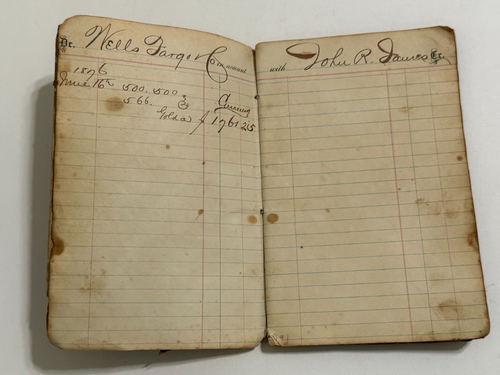 Dr. Wells Fargo & Co in account
with John R. James Cr.
1876
June 16th 500. 500
566. Currency
Gold 1761 25